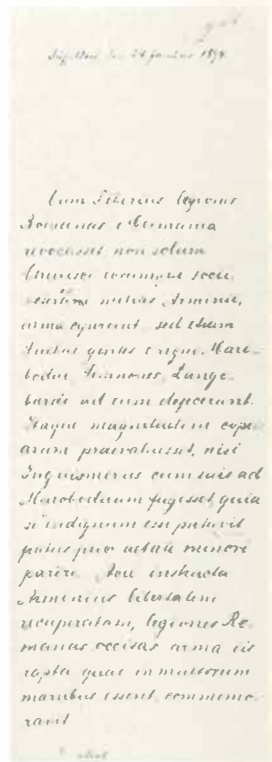 den 24 Januar 1894.
Cum Tiberius legiones
Romanas e Germania
revocasset non solum
Cherusci eorumque socii
Arminii,
arma ceperunt, sed etiam
gentes e regno Maro-
bodui Semnones, Lango-
bardi ad eum defecerunt.
Itaque magnitudine copi-
arum praevaluisset, nisi
Inguiomerus cum suis ad
Maroboduum fugisset, quia
indignum esse putavit
patruo aetate minori
parere. Acie instructa
Arminius libertatem
recuperatam, legiones Ro-
manas occisas arma iis
rapta quae in multorum
manibus essent, commemo-
ravit